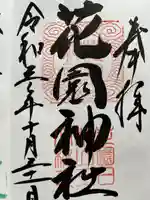 奉拝
花園神社
令和 年十月 日